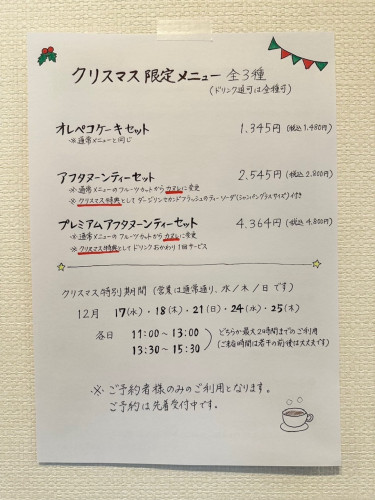 クリスマス限定メニュー 全3種
(ドリンク追可は全種可)
オレペコケーキセット 1.345円(税込1.480円)
※通常メニューと同じ
アフタヌーンティーセット 2.545円(税込2.800円)
※通常メニューのフルーツカットからカヌレに変更
※クリスマス特典としてダージリンセカンドフラッシュのティーソーダ(シャンパングラスサイズ)付き
プレミアムアフタヌーンティーセット 4.364円(税込4.800円)
※通常メニューのフルーツカットからカヌレに変更
※クリスマス特典としてドリンクおかわり1回サービス
クリスマス特別期間(営業は通常通り、水/木/日です)
12月 17(水)・18(木)・21(日)・24(水)・25(木)
各日 11:00~13:00
13:30~15:30
どちらか最大2時間までのご利用
(ご来店時間は若干の前後は大丈夫です)
※ご予約者様のみのご利用となります。
ご予約は先着受付中です。